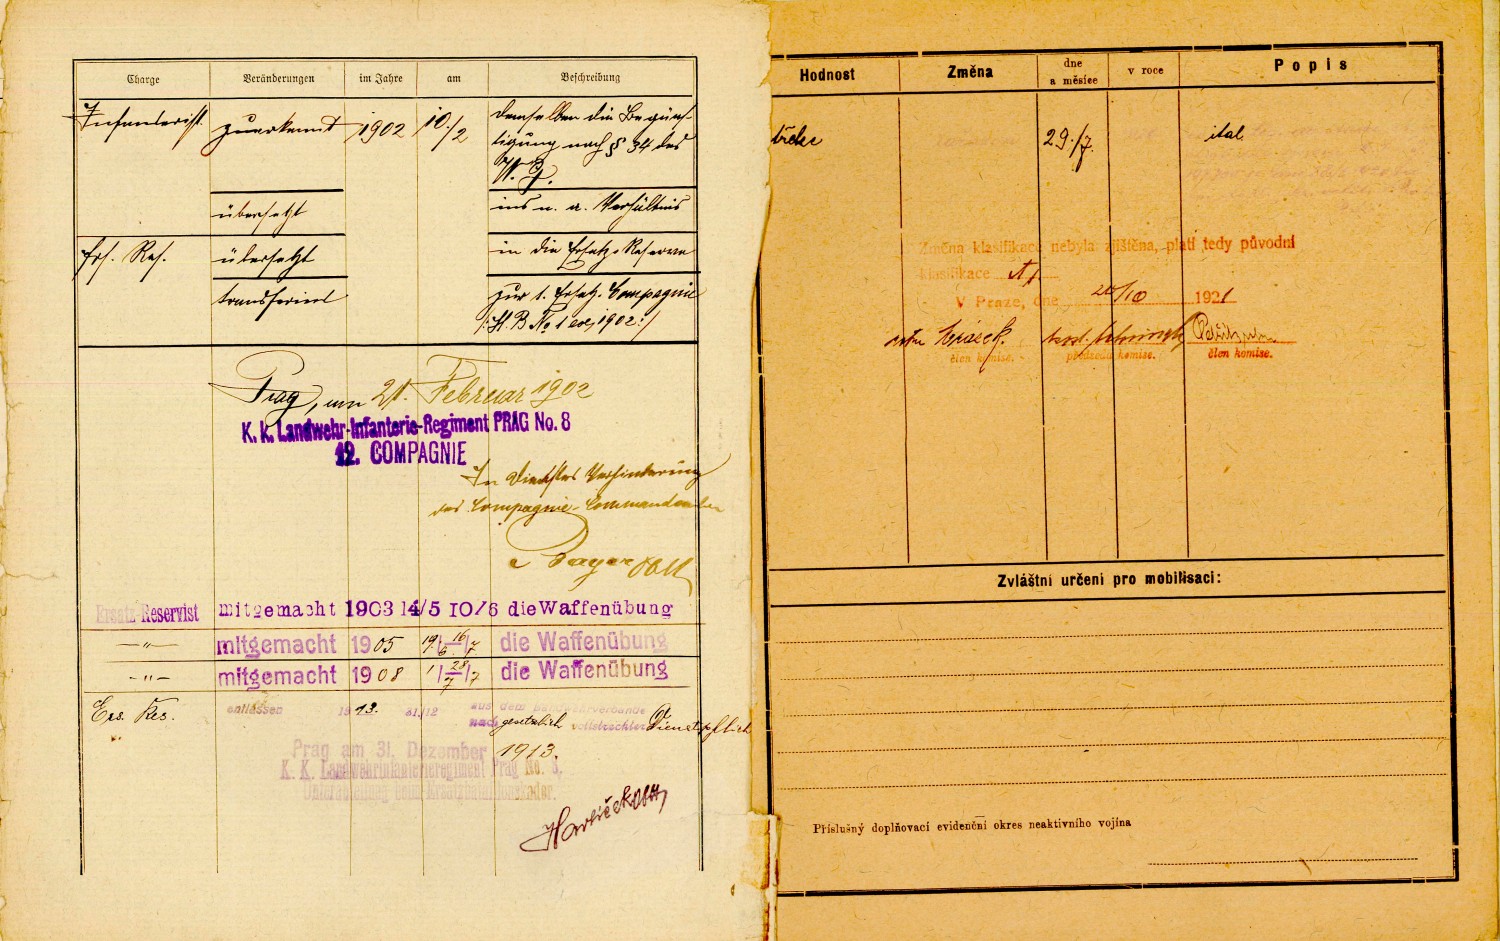 Charge Veränderungen im Jahre am Beschreibung
Infanterist zuerkannt 1902 10./2 demselben die Begüns-
tigung nach § 34 des
W. G.
übersetzt ins n. a. Verhältnis
Ers. Res. übersetzt in die Ersatz-Reserve
transferiert zur 1. Ersatz-Compagnie
1902:/
Prag, am 21. Februar 1902
K. k. Landwehr-Infanterie-Regiment PRAG No. 8
12. COMPAGNIE
In Verhinderung
des Compagnie-Commandanten
Ersatz-Reservist mitgemacht 1903 14/5 10/6 die Waffenübung
-"- mitgemacht 1905 19./6. 16/7 die Waffenübung
-"- mitgemacht 1908 1/7 28/7 die Waffenübung
Ers. Res. entlassen 1913. 31/12 aus dem Landwehrverbande
nach gesetzlich vollstreckter Dienstpflicht
Prag am 31. Dezember 1913.
K. K. Landwehrinfanterieregiment Prag No. 8,
Unterabteilung beim Ersatzbataillonskader.
Hodnost Změna dne a měsíce v roce Popis
29./7.
Změna klasifikace nebyla zjištěna, platí tedy původní
klasifikace A/.
V Praze, dne 20/10 1921
člen komise. předseda komise. člen komise.
Zvláštní určení pro mobilisaci:
Příslušný doplňovací evidenční okres neaktivního vojína